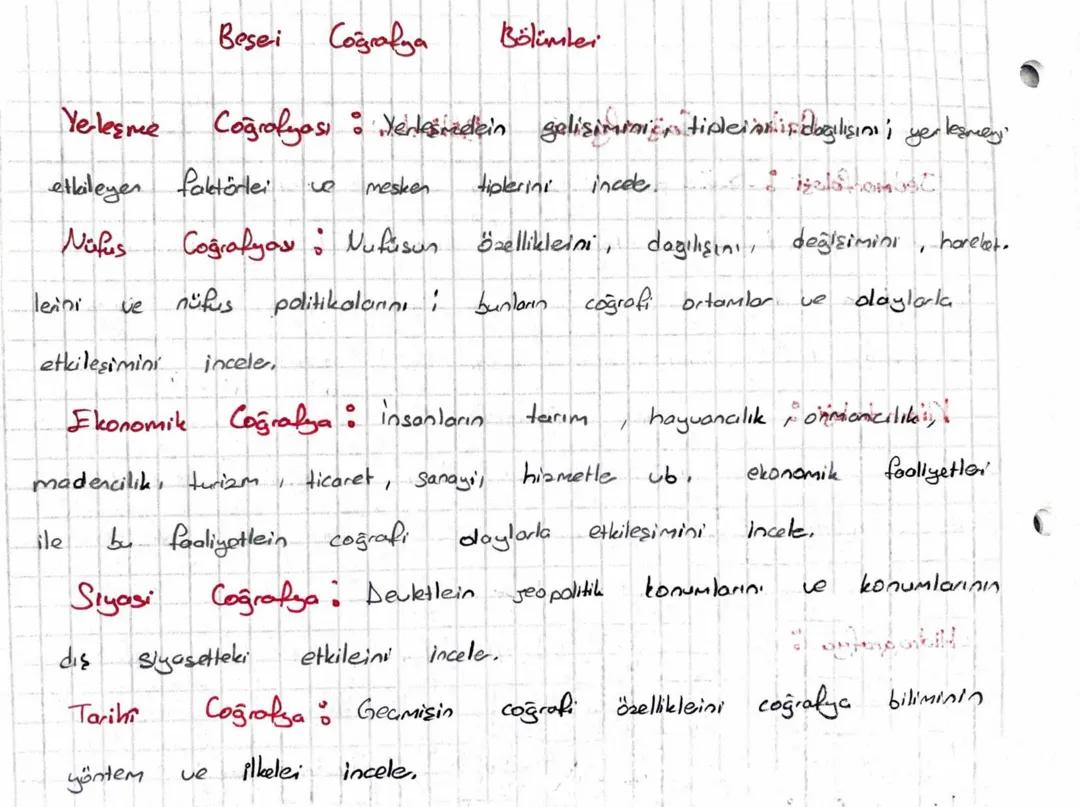 Beşeri Coğrafya Bölümleri
Yerleşme Coğrafyası : Yerleşmelein gelişimini, tipleini, dağılışını ; yerleşmeyi
etkileyen faktörlei ve mesken tiplerini incele.
Nüfus Coğrafyası : Nufüsun özellikleini, dagılışını, değişimini, hareket-
lerini ve nüfus politikalarını ; bunların coğrafi ortamlar ve olaylarla
etkileşimini incele.
Ekonomik Coğrafya : insanların tarım, hayvancılık, ormancılık,
madencilik, turizm, ticaret, sanayi, hizmetle vb. ekonomik faaliyetlei
ile bu faaliyetlein coğrafi olaylarla etkileşimini incele.
Siyasi Coğrafya : Devletlein jeopolitik konumlarını ve konumlarının
dış siyasetteki etkileini incele.
Tarihî Coğrafya : Geçmişin coğrafi özellikleini coğrafya biliminin
yöntem ve ilkelei incele.